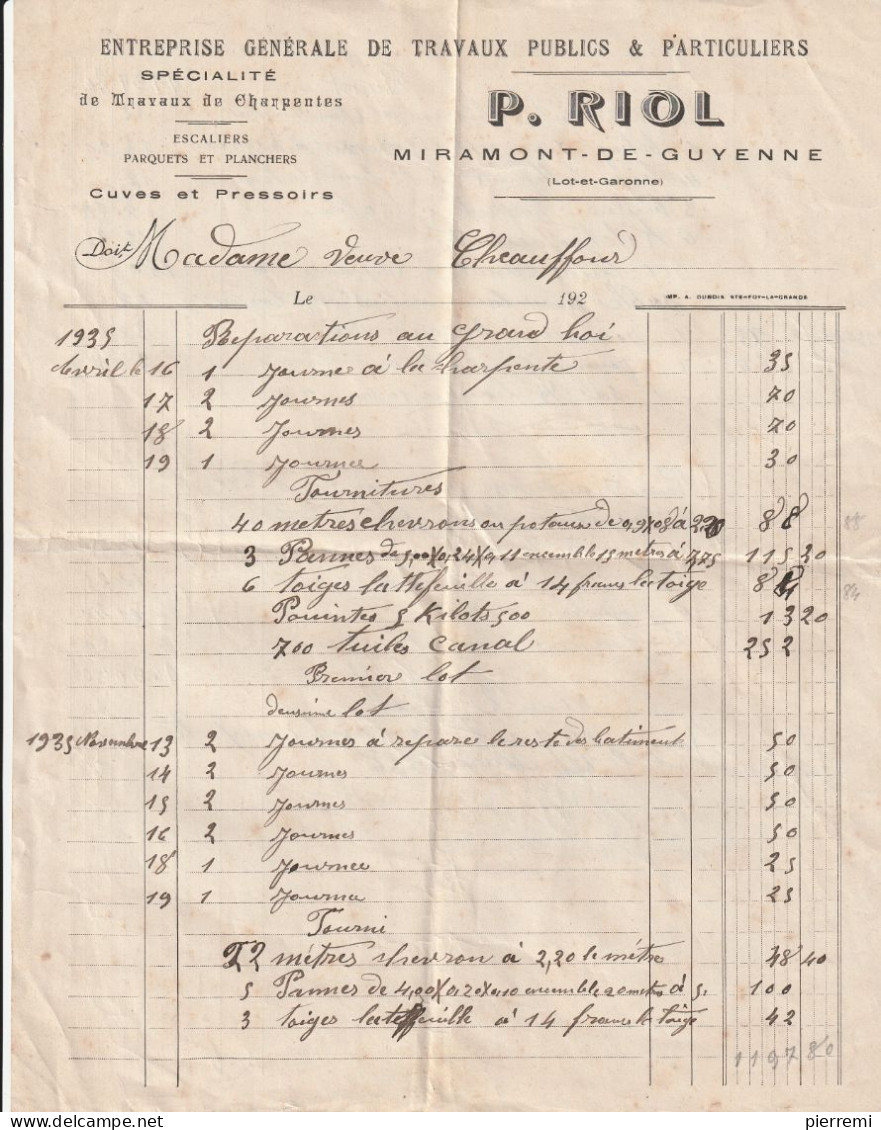 ENTREPRISE GÉNÉRALE DE TRAVAUX PUBLICS & PARTICULIERS
SPÉCIALITÉ
de Travaux de Charpentes
ESCALIERS
PARQUETS ET PLANCHERS
Cuves et Pressoirs
P. RIOL
MIRAMONT-DE-GUYENNE
(Lot-et-Garonne)
Doit Madame Veuve Cheauffour
Le 192
IMP. A. DUBOIS STE-FOY-LA-GRANDE
1935 Reparations au grand hoi
Avril le 16 1 Journe à la charpente 35
17 2 Journes 70
18 2 Journes 70
19 1 Journee 30
Fournitures
40 metres chevrons ou potaux de 0,9X08 à 2,20 88 88
3 Pannes de 5,00X0,24X0,11 encemble 15 metres à 7,75 115 20
6 toiges lattefeuille à 14 francs la toige 84 84
Pouintes 5 Kilots 500 13 20
700 tuiles canal 252
Premier lot
deusime lot
1935 Novembre 13 2 Journes à repare le reste des batiment 50
14 2 Journes 50
15 2 Journes 50
16 2 Journes 50
18 1 Journee 25
19 1 Journee 25
Fourni
22 métres chevron à 2,20 le métre 48 40
5 Pannes de 4,00X0,20X0,10 encemble 20 metres à 5, 100
3 toiges lattefeuille à 14 francs la toige 42
1197 80
pierremi